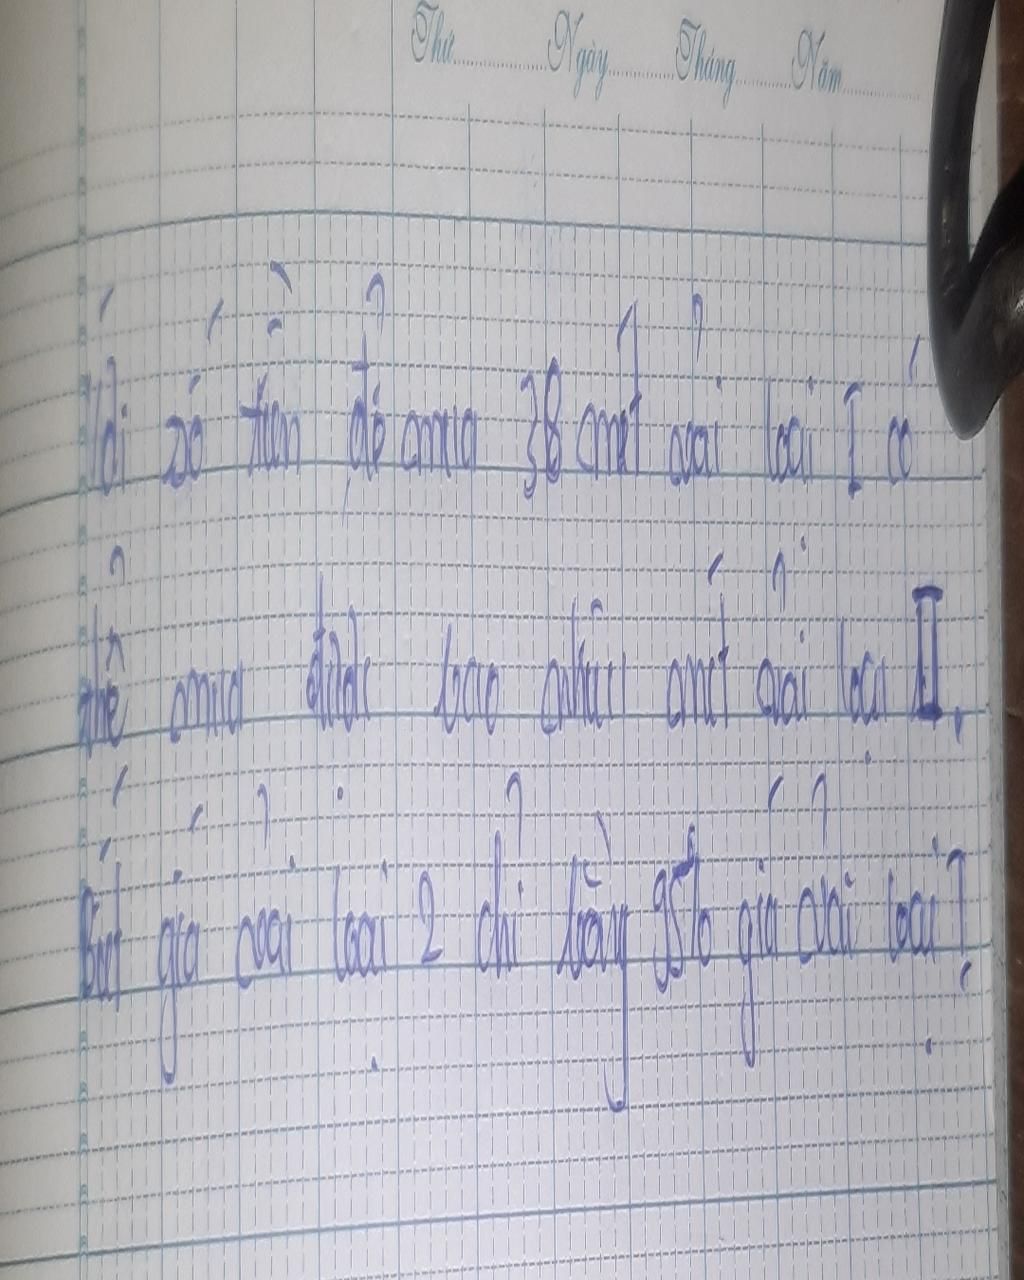 Thứ Ngày Tháng Năm
Với số tiền để mua 38 mét vải loại I có
thể mua được bao nhiêu mét vải loại II,
Biết giá vải loại 2 chỉ bằng 95% giá vải loại I